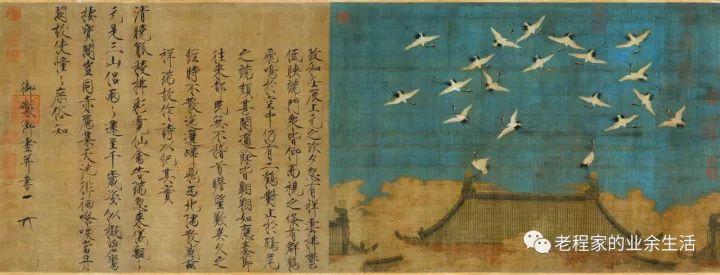 政和壬辰上元之次夕忽有祥雲拂鬱
低映端門衆皆仰而視之倏有群鶴
飛鳴於空中仍有二鶴對止於鴟尾
之端頗甚閑適餘皆翱翔如應奏節
往來都民無不稽首瞻望歎異久之
經時不散迤邐歸飛西北隅散感茲
祥瑞故作詩以紀其實
清曉觚稜拂彩霓仙禽告瑞忽來儀飄〻
元是三山侶兩〻還呈千歲姿似擬碧鸞
棲寶閣豈同赤雁集天池徘徊嘹唳當丹
闕故使憧〻庶俗知
御製御畫并書
老程家的业余生活